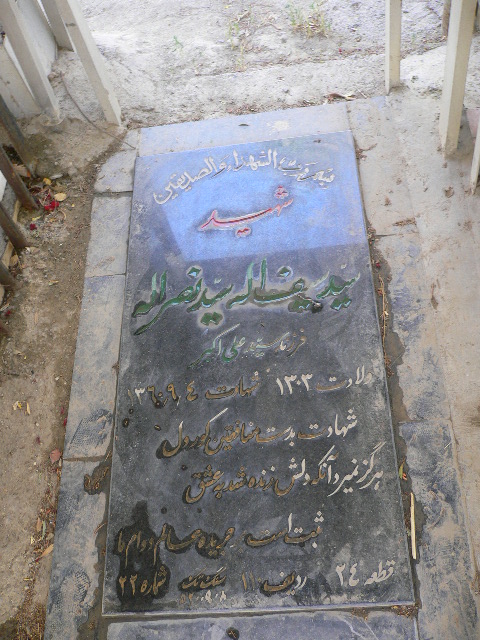 رب الشهداء والصدیقین
شهید
سید سیف اله سید نصراله
فرزند سید علی اکبر
ولادت ۱۳۰۳ شهادت ۱۳۶۰٫۹٫۴
شهادت بدست منافقین کوردل
هرگز نمیرد آنکه دلش زنده شد به عشق
ثبت است بر جریده عالم دوام ما
قطعه ۲۴ ردیف ۱۱ شماره ۲۲